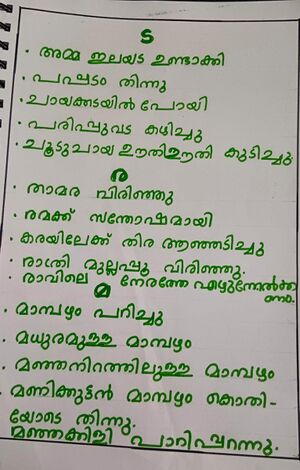 ട
· അമ്മ ഇലയട ഉണ്ടാക്കി
· പപ്പടം തിന്നു
· ചായക്കടയിൽ പോയി
· പരിപ്പുവട കഴിച്ചു
· ചൂടുചായ ഊതിഊതി കുടിച്ചു.
ര
· താമര വിരിഞ്ഞു
· രമക്ക് സന്തോഷമായി
· കരയിലേക്ക് തിര ആഞ്ഞടിച്ചു
· രാത്രി മുല്ലപ്പൂ വിരിഞ്ഞു.
· രാവിലെ നേരത്തേ എഴുന്നേൽക്ക
ണം.
മ
· മാമ്പഴം പറിച്ചു
· മധുരമുള്ള മാമ്പഴം
· മഞ്ഞനിറത്തിലുള്ള മാമ്പഴം
· മണിക്കുട്ടൻ മാമ്പഴം കൊതി-
യോടെ തിന്നു.
മഞ്ഞക്കിളി പാറിപ്പറന്നു.